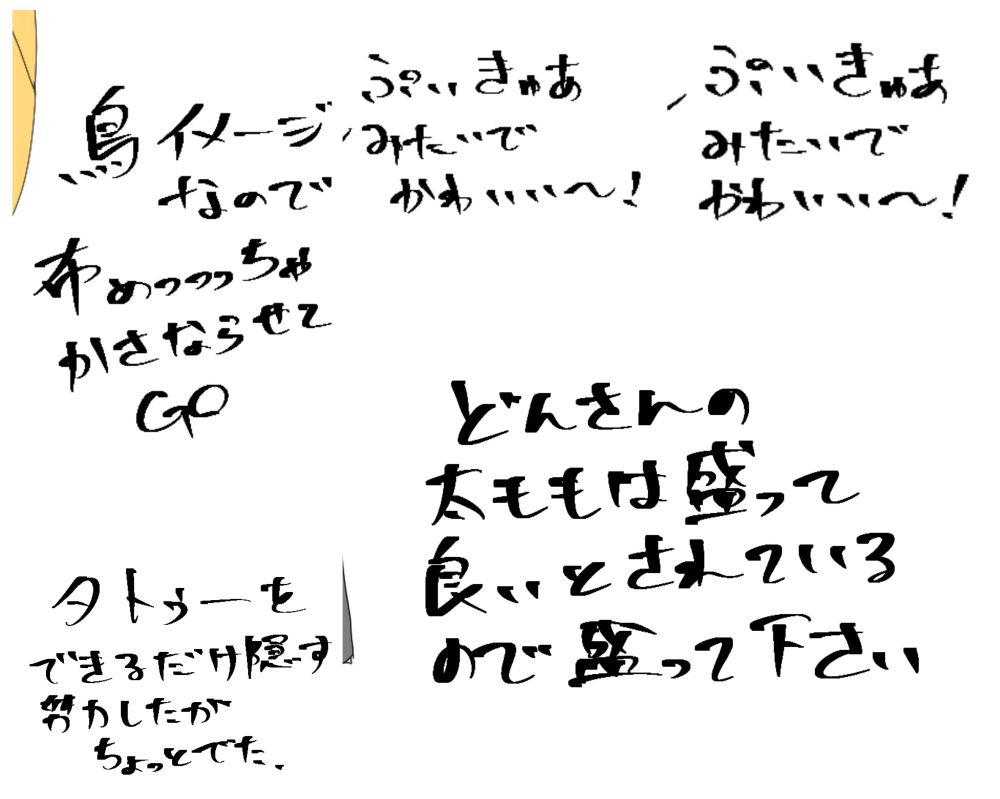 鳥イメージ
なので
布めっっっちゃ
かさならせて
GO
ぷいきゅあ
みたいで
かわいい〜!
ぷいきゅあ
みたいで
かわいい〜!
どんさんの
太ももは盛って
良いとされている
ので盛って下さい
タトゥーを
できるだけ隠す
努力したが
ちょっとでた.